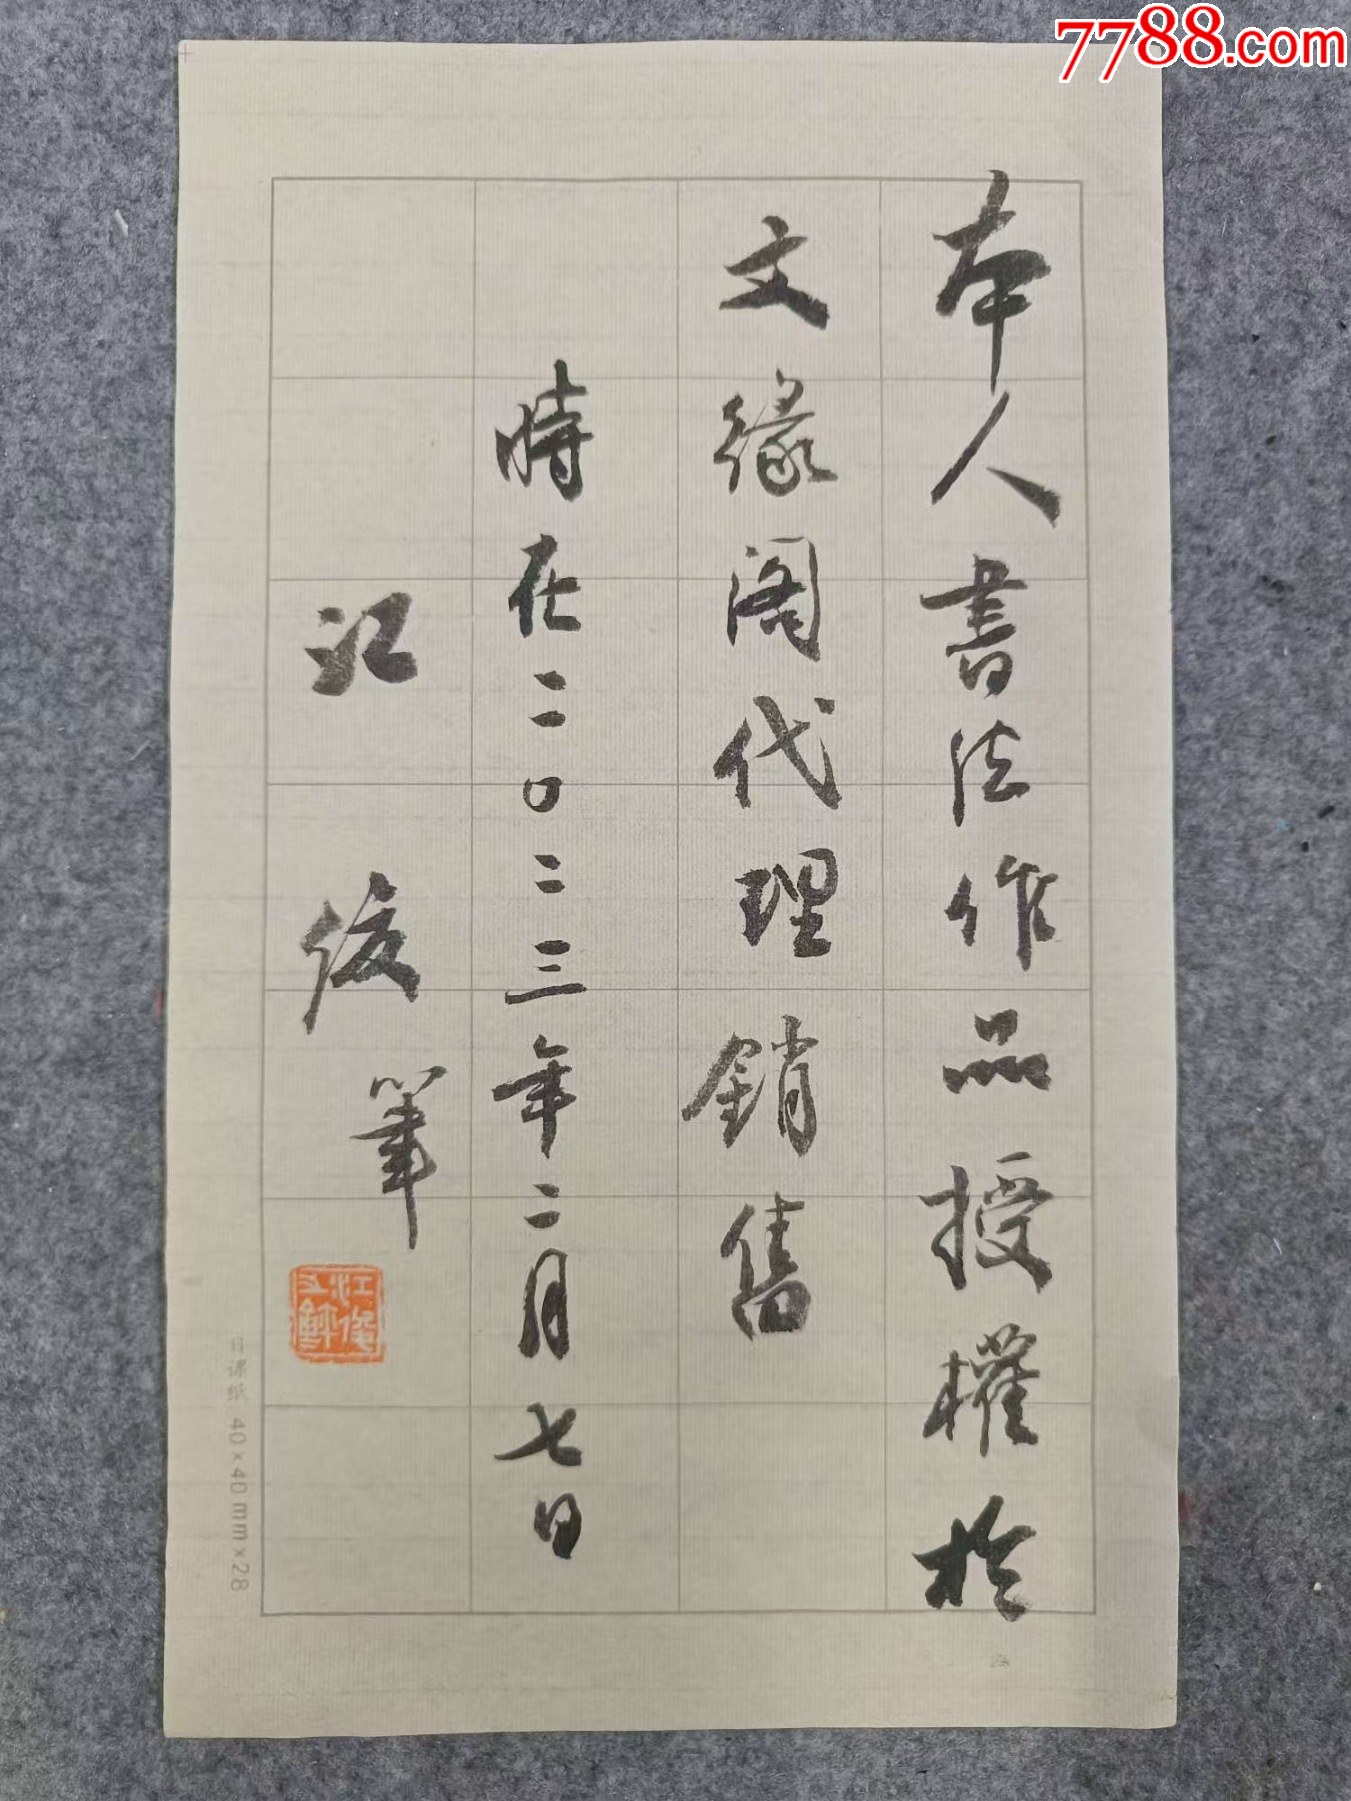 7788.com
本人書法作品授權於
文緣阁代理銷售
時在二〇二三年二月七日
江俊筆
日课纸 40×40mm×28